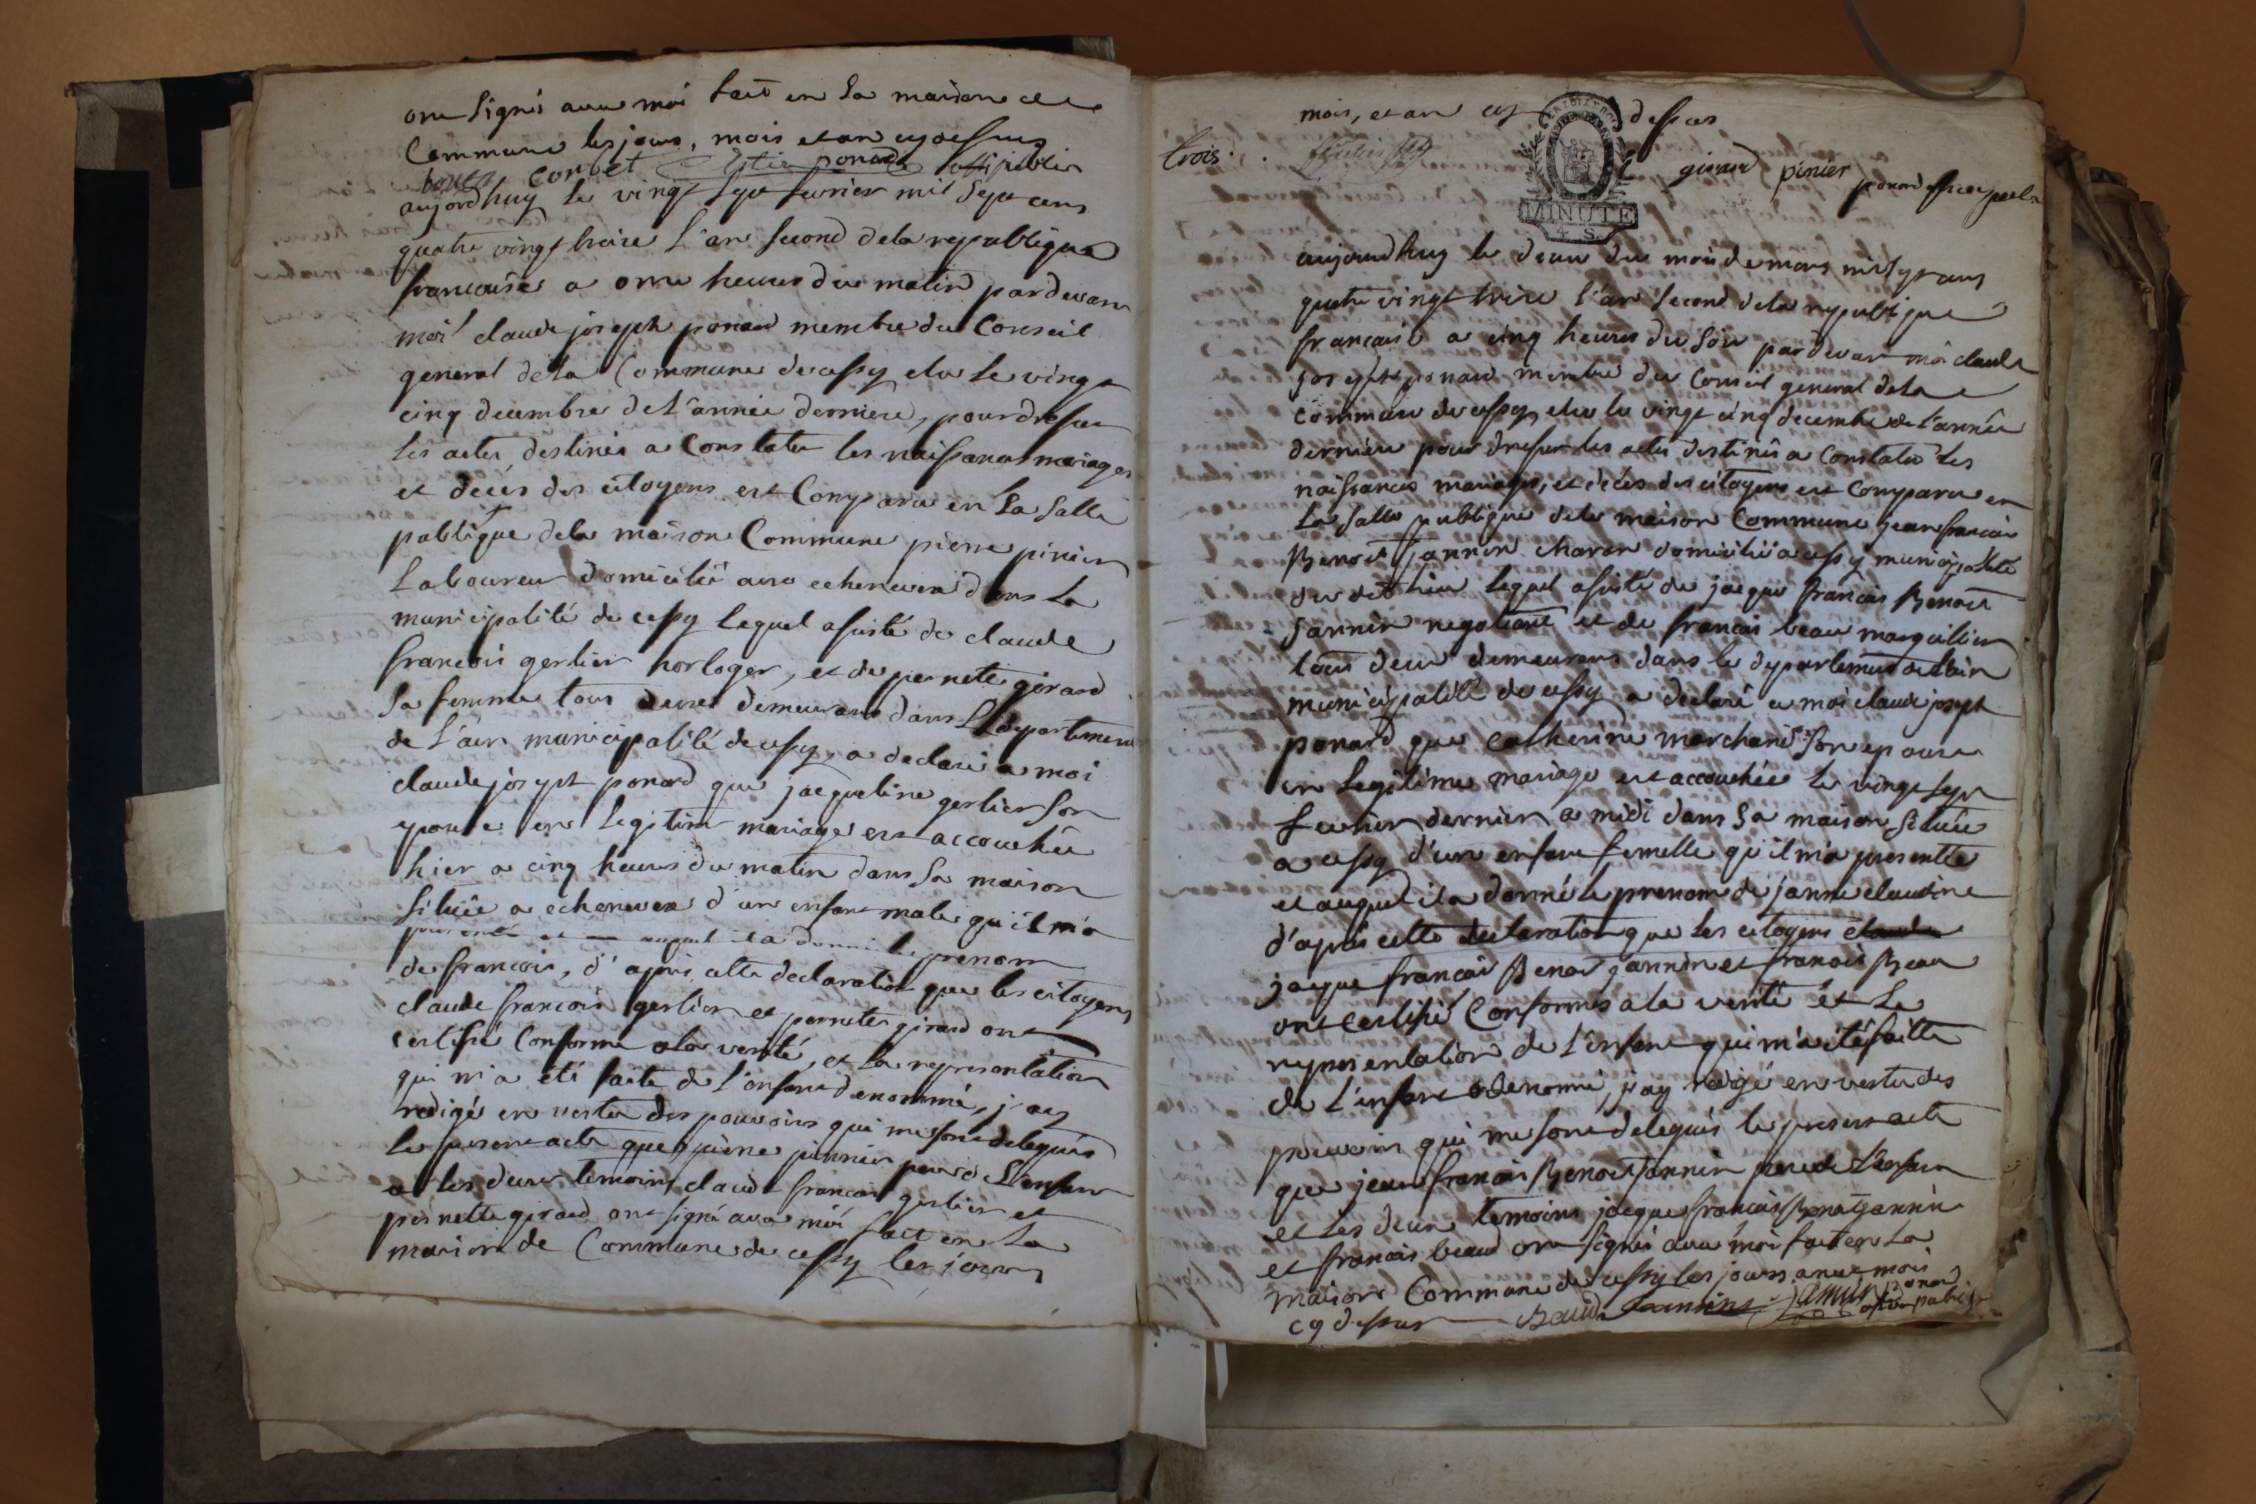 ont signés avec moi fait en la maison de
Commune les jours, mois et an cy dessus
corbet ponard offi public
aujord huy le vingt sept fevrier mil sept cens
quatre vingt treize l'an second de la republique
francoise a onze heures du matin pardevant
moi claude joseph ponard membre du Conseil
general de la Commune de cessy elu le vingt
cinq decembre de l'année derniere, pour dresser
les actes destinés a Constater les naissances mariages
et decès des citoyens est Comparu en la salle
publique de la maison Commune pierre pinier
Laboureur domicilié aux echenevex dans la
municipalité de cessy lequel assisté de claude
francois gerlier horloger, et de pernete girard
sa femme tous deux demeurans dans le departement
de l'ain municipalité de cessy, a declaré a moi
claude joseph ponard que jacqueline gerlier son
epouse en legitime mariage est accouchée
hier a cinq heures du matin dans sa maison
située a echenevex d'un enfant male qu'il m'a
presenté et auquel il a donné le prenom
de francois, d'apris cette declaration que les citoyens
claude francois gerlier et pernete girard ont
certifié Conforme a la verité, et la representation
qui m'a été faite de l'enfant denommé, j'ay
redigé en vertu des pouvoirs qui me sont delegués
le present acte que pierre pinnier pere de l'enfant
et les deux temoins claude francois gerlier et
pernette girard ont signé avec moi fait en la
maison de Commune de cessy les jours
mois, et an cy dessus
trois.
MINUTE
4 S.
girard pinier ponard officier public
aujourdhuy le deux du mois de mars mil sept cens
quatre vingt treize l'an second de la republique
francaise a cinq heures du soir pardevant moi claude
joseph ponard membre du Conseil general de la
Commune de cessy elu le vingt cinq decembre de l'année
derniere pour dresser les actes destinés a Constater les
naissances mariages, et décés des citoyens est Comparu en
la salle publique de la maison Commune jean francois
Benoit jannin charon domicilié a cessy municipalité
du dit lieu lequel assisté de jacque francois Benoit
jannin negotiant et de francois beau marguillier
tous deux demeurans dans le departement de l'ain
municipalité de cessy a declaré a moi claude joseph
ponard que catherine marchand son epouse
en legitime mariage est accouchée le vingt sept
fevrier dernier a midi dans sa maison située
a cessy d'un enfant femelle qu'il m'a presenttée
et auquel il a donné le prenom de janne claudine
d'apris cette declaration que les citoyens claude
jacque francois Benoi jannin et francois Beau
ont certifié Conformes a la verité et la
representation de l'enfant qui m'a été faitte
de l'enfant denommé, j'ay redigé en vertu des
pouvoirs qui me sont delegués le present acte
que jean francois Benoit jannin pere de l'enfant
et les deux temoins jacque francois Benoit jannin
et francois beaud ont signés avec moi fait en la
maison Commune de cessy les jours anne mois
cy dessus Beaud jannin janin ponard
officier public